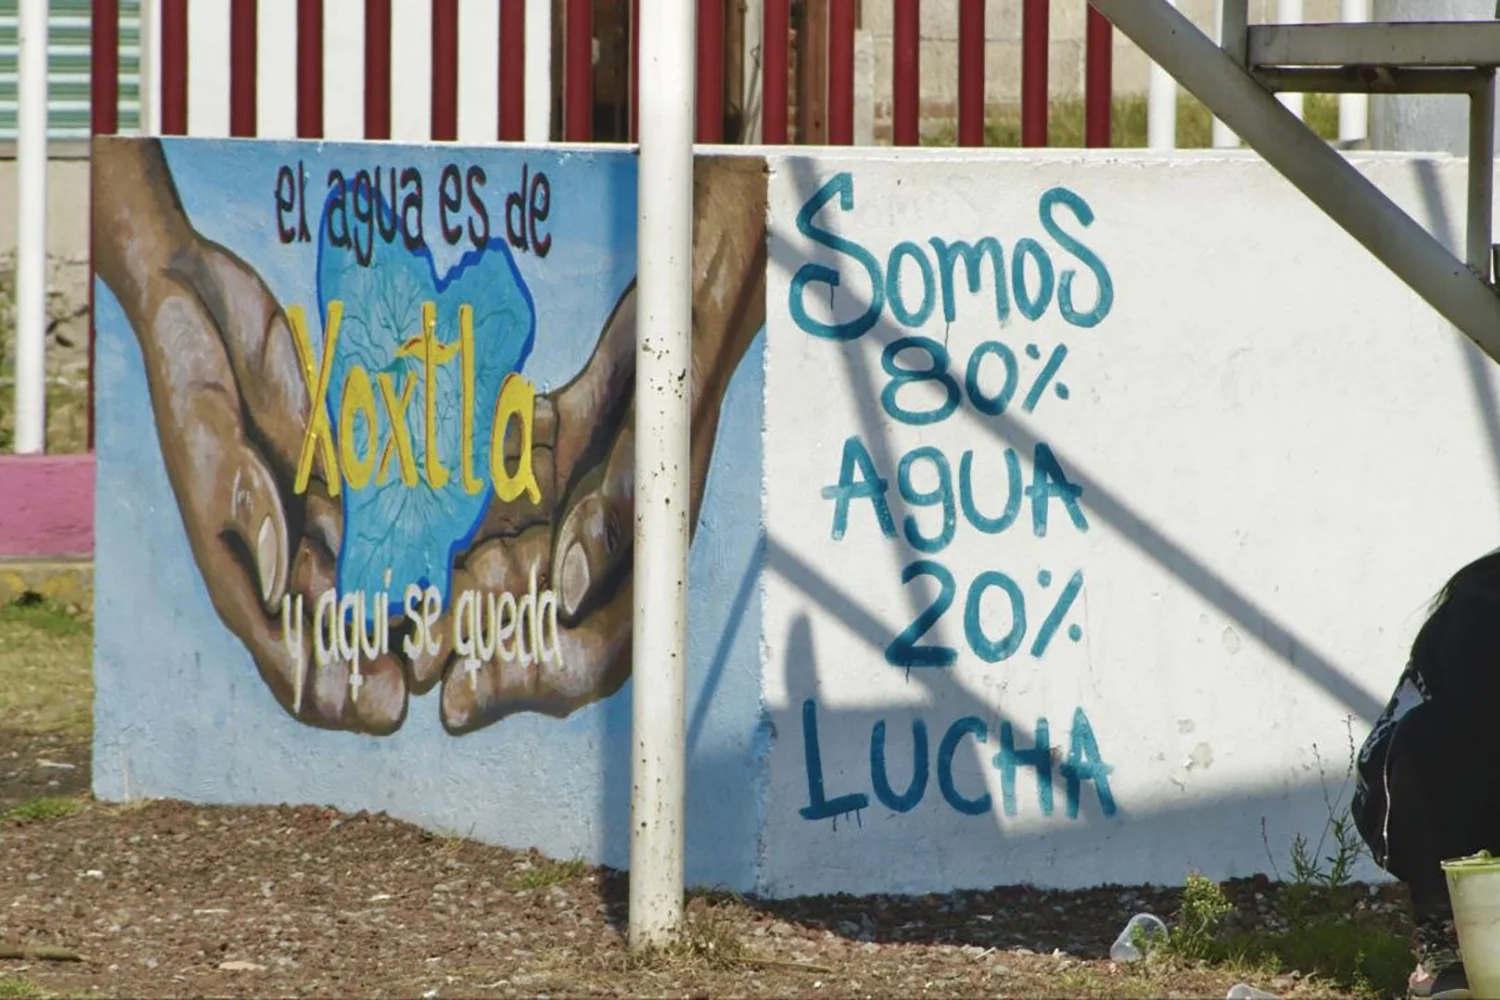 el agua es de
Xoxtla
y aqui se queda
SomoS
80%
AgUA
20%
LUCHA